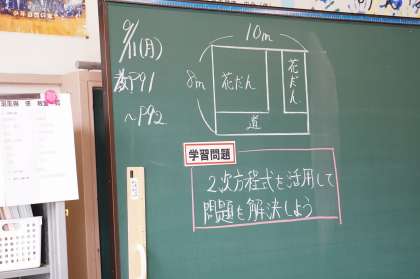 9/1(月)
教P91
~P92
10m
8m
花だん
花だん
道
学習問題
2次方程式を活用して
問題を解決しよう